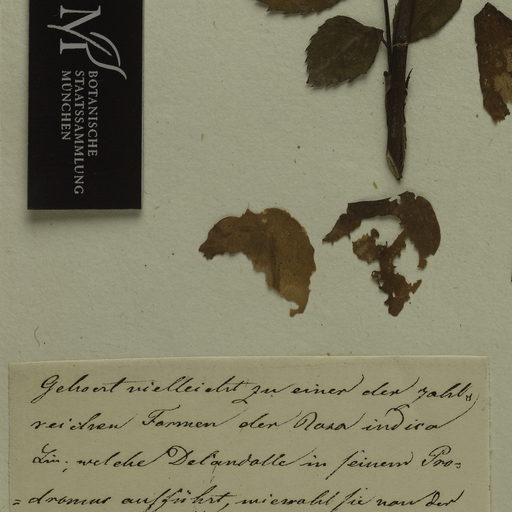 M
BOTANISCHE
STAATSSAMMLUNG
MÜNCHEN
Gehoert vielleicht zu einer der zahl=
reichen Formen der Rosa indica
Lin; welche DeCandolle in seinem Pro=
=dromus aufführt, wiewohl sie von der